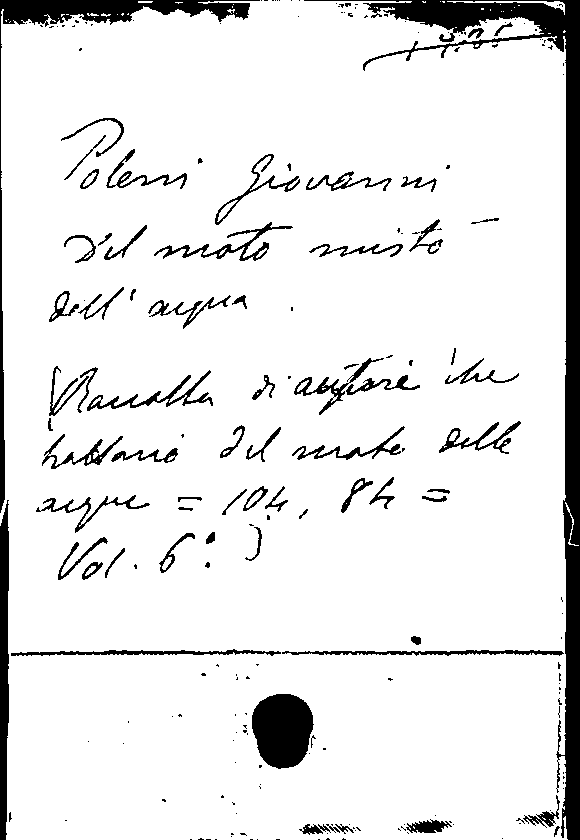 Poleni Giovanni
Del moto misto
dell' acqua.
(Raccolta di autori che
trattano del moto delle
acque = 104, 84 =
Vol. 6º.)